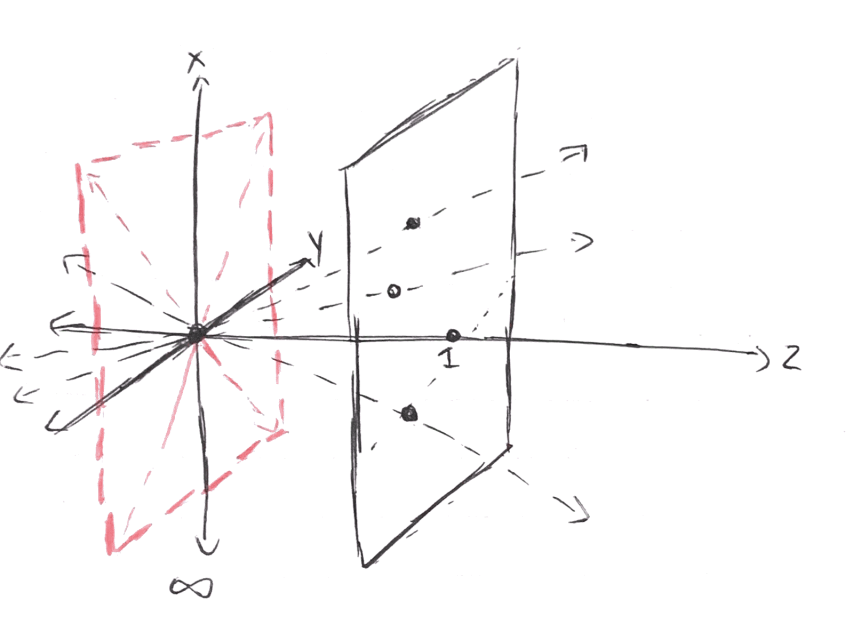 x
y
1
z
∞